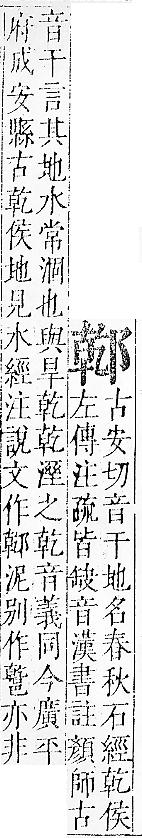 古安切音干地名春秋石經乾侯
左傳注疏皆缺音漢書註顏師古
音干言其地水常涸也與旱乾乾溼之乾音義同今廣平
府成安縣古乾侯地見水經注說文作泥别作亦非